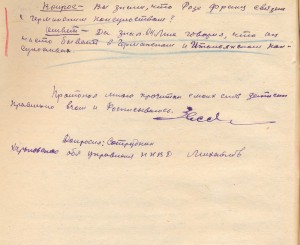 Вопрос – Вы знали, что Розе Франц связан
с Германским консульством?
Ответ – Да знал. Он мне говорил, что он
часто бывает в Германском и Итальянском кон-
сульствах.
Протокол мною прочитан с моих слов записан
правильно в чем и расписываюсь.
Допросил: Сотрудник
Харьковского обл управления НКВД Михайлов